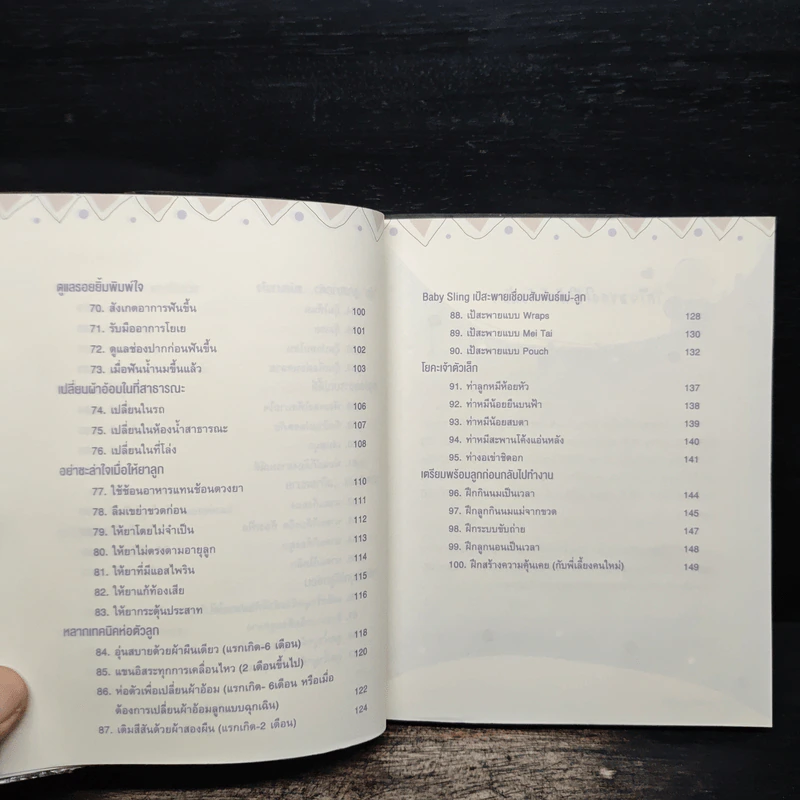 ดูแลรอยยิ้มพิมพ์ใจ
70. สังเกตอาการฟันขึ้น 100
71. รับมืออาการโยเย 101
72. ดูแลช่องปากก่อนฟันขึ้น 102
73. เมื่อฟันน้ำนมขึ้นแล้ว 103
เปลี่ยนผ้าอ้อมในที่สาธารณะ
74. เปลี่ยนในรถ 106
75. เปลี่ยนในห้องน้ำสาธารณะ 107
76. เปลี่ยนในที่โล่ง 108
อย่าชะล่าใจเมื่อให้ยาลูก
77. ใช้ช้อนอาหารแทนช้อนตวงยา 110
78. ลืมเขย่าขวดก่อน 111
79. ให้ยาโดยไม่จำเป็น 112
80. ให้ยาไม่ตรงตามอายุลูก 113
81. ให้ยาที่มีแอสไพริน 114
82. ให้ยาแก้ท้องเสีย 115
83. ให้ยากระตุ้นประสาท 116
หลากเทคนิคห่อตัวลูก
84. อุ่นสบายด้วยผ้าผืนเดียว (แรกเกิด-6 เดือน) 118
85. แขนอิสระทุกการเคลื่อนไหว (2 เดือนขึ้นไป) 120
86. ห่อตัวเพื่อเปลี่ยนผ้าอ้อม (แรกเกิด- 6เดือน หรือเมื่อ
ต้องการเปลี่ยนผ้าอ้อมลูกแบบฉุกเฉิน) 122
87. เติมสีสันด้วยผ้าสองผืน (แรกเกิด-2 เดือน) 124
Baby Sling เป้สะพายเชื่อมสัมพันธ์แม่-ลูก
88. เป้สะพายแบบ Wraps 128
89. เป้สะพายแบบ Mei Tai 130
90. เป้สะพายแบบ Pouch 132
โยคะเจ้าตัวเล็ก
91. ท่าลูกหมีห้อยหัว 137
92. ท่าหมีน้อยยืนบนฟ้า 138
93. ท่าหมีน้อยสบตา 139
94. ท่าหมีสะพานโค้งแอ่นหลัง 140
95. ท่างอเข่าชิดอก 141
เตรียมพร้อมลูกก่อนกลับไปทำงาน
96. ฝึกกินนมเป็นเวลา 144
97. ฝึกลูกกินนมแม่จากขวด 145
98. ฝึกระบบขับถ่าย 147
99. ฝึกลูกนอนเป็นเวลา 148
100. ฝึกสร้างความคุ้นเคย (กับพี่เลี้ยงคนใหม่) 149